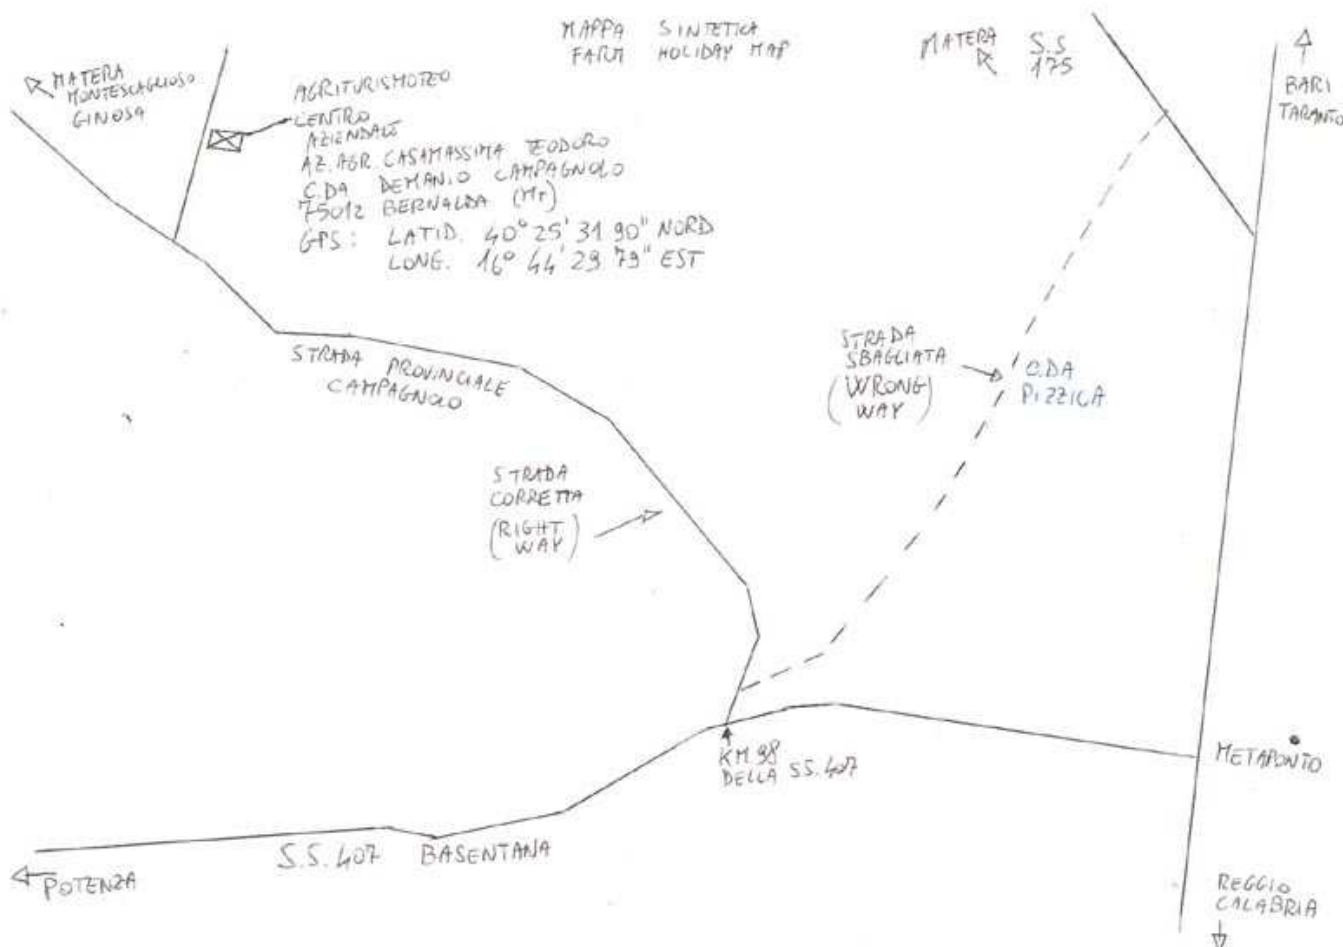 MAPPA SINTETICA
FARM HOLIDAY MAP
MATERA
MONTESCAGLIOSO
GINOSA
AGRITURISMOTEO
CENTRO
AZIENDALE
AZ. AGR. CASAMASSIMA TEODORO
C.DA DEMANIO CAMPAGNOLO
75012 BERNALDA (MT)
GPS: LATID. 40° 25' 31 90" NORD
LONG. 16° 44' 29 79" EST
MATERA
S.S
175
BARI
TARANTO
STRADA PROVINCIALE
CAMPAGNOLO
STRADA
SBAGLIATA
(WRONG
WAY)
C.DA
PIZZICA
STRADA
CORRETTA
(RIGHT
WAY)
KM.98
DELLA SS.407
METAPONTO
S.S. 407 BASENTANA
POTENZA
REGGIO
CALABRIA